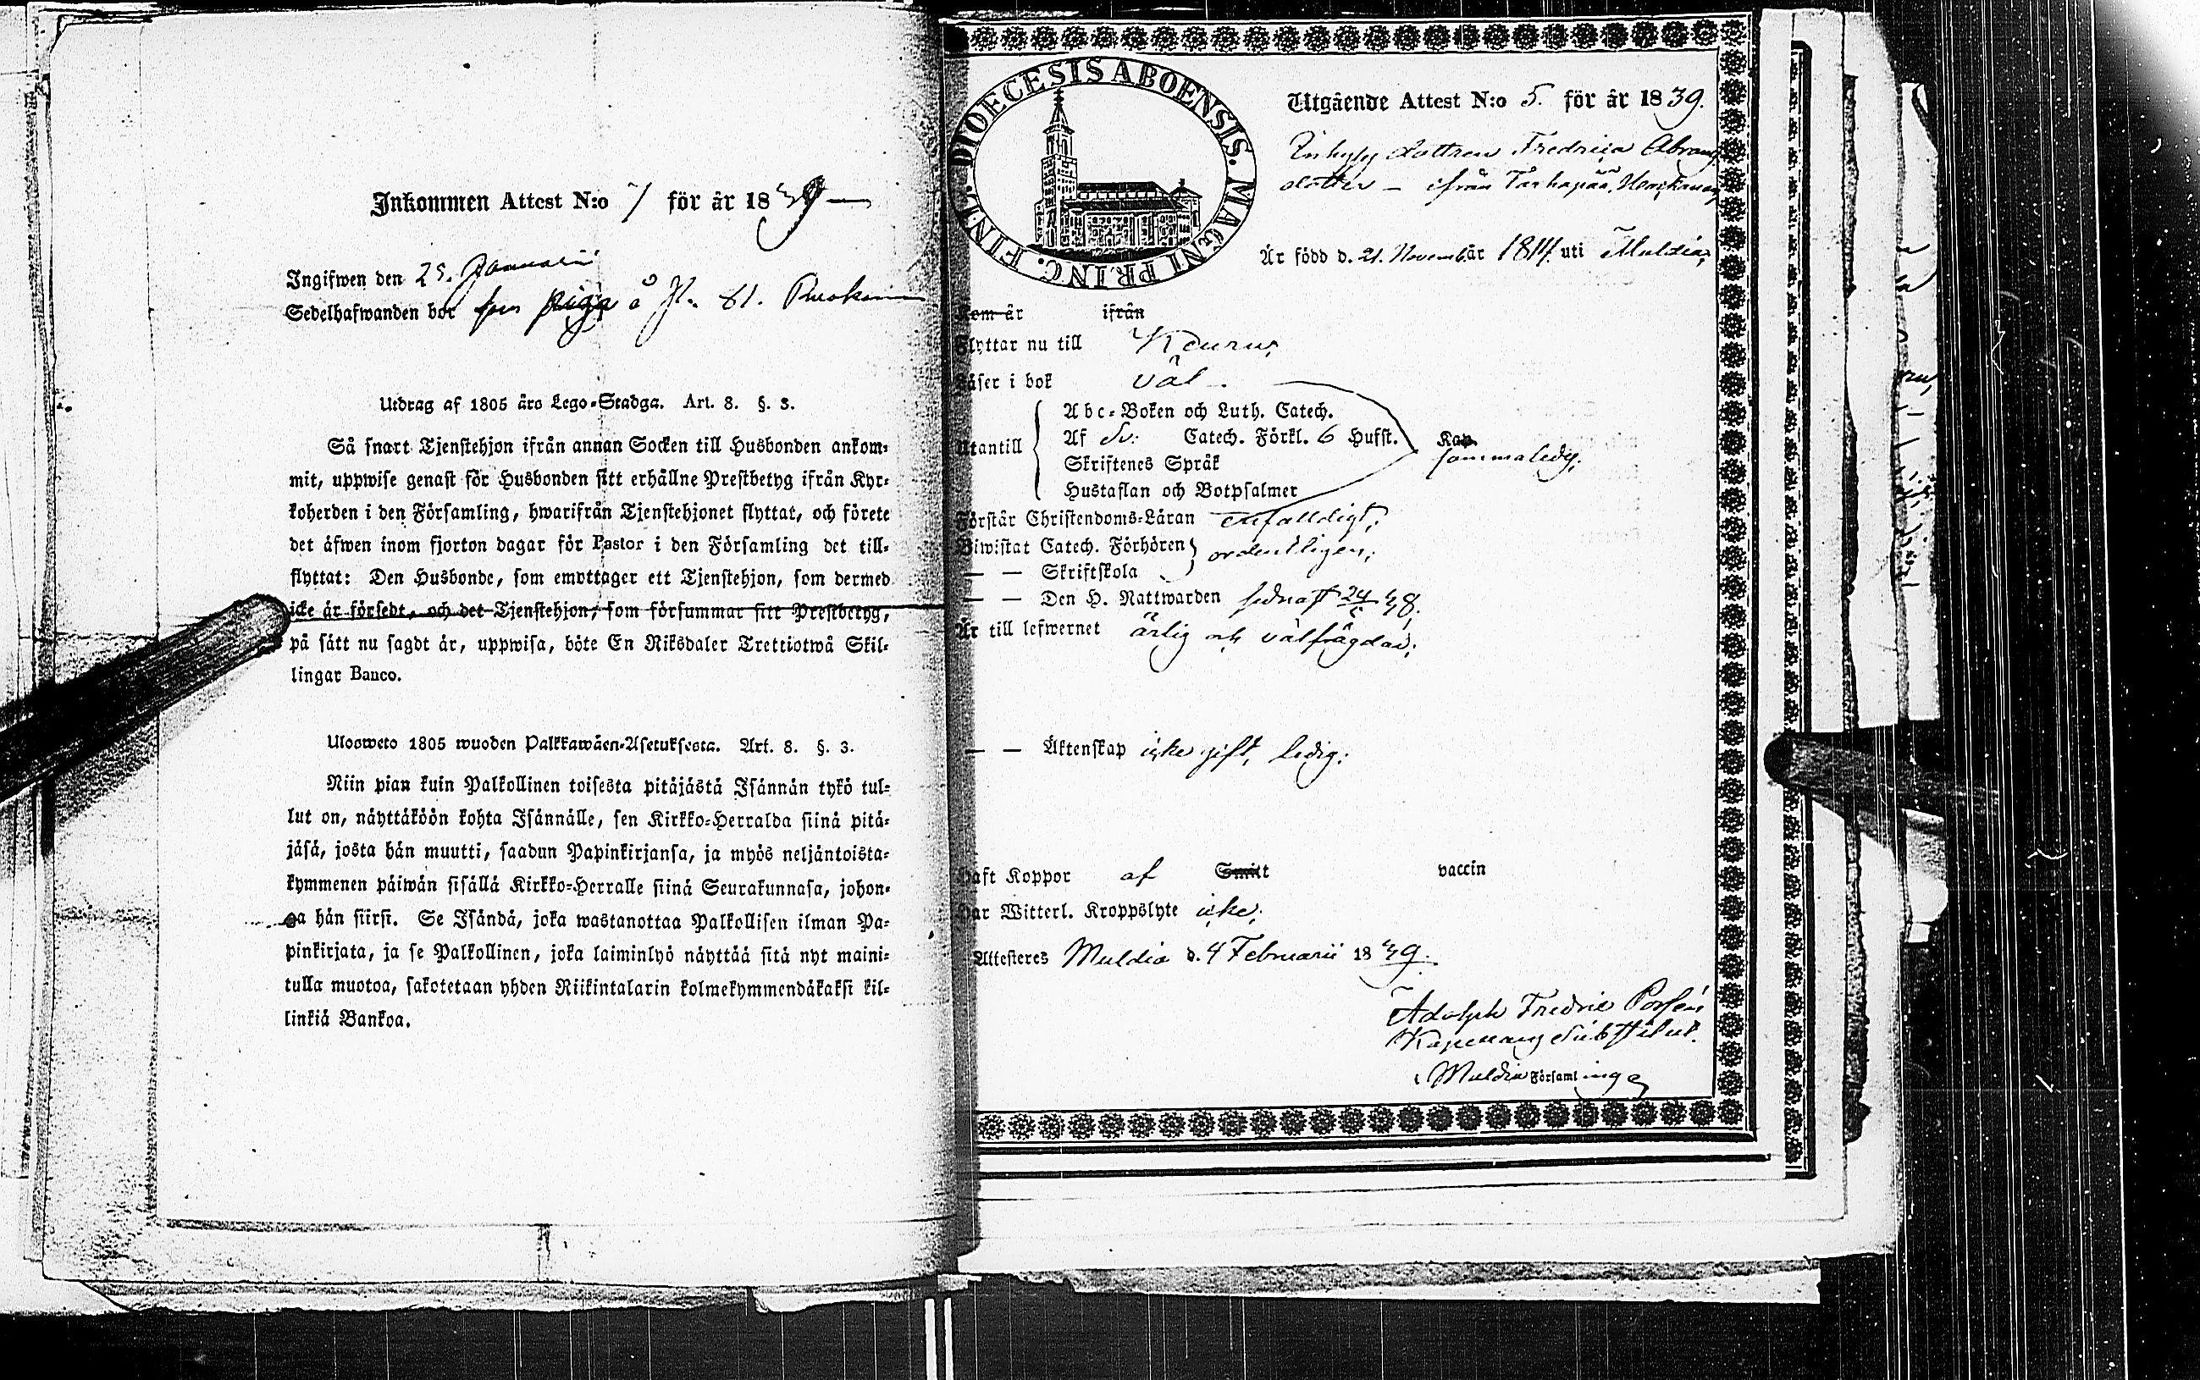 Inkommen Attest N:o 7 för år 1839
Ingifwen den 25. Januarii
Sedelhafwanden bor som piga å
Utdrag af 1805 års Lego-Stadga. Art. 8. §. 3.
Så snart Tjenstehjon ifrån annan Socken till Husbonden ankom-
mit, uppwise genast för Husbonden sitt erhållne Prestbetyg ifrån Kyr-
koherden i den Församling, hwarifrån Tjenstehjonet flyttat, och förete
det äfwen inom fjorton dagar för Pastor i den Församling det till-
flyttat: Den Husbonde, som emottager ett Tjenstehjon, som dermed
icke är försedt, och det Tjenstehjon, som försummar sitt Prestbetyg,
på sätt nu sagdt är, uppwisa, böte En Riksdaler Trettiotwå Skil-
lingar Banco.
Ulosweto 1805 wuoden Palkkawäen-Asetuksesta. Art. 8. §. 3.
Niin pian kuin Palkollinen toisesta pitäjästä Isännän tykö tul-
lut on, näyttäköön kohta Isännälle, sen Kirkko-Herralda siinä pitä-
jäsä, josta hän muutti, saadun Papinkirjansa, ja myös neljäntoista-
kymmenen päiwän sisällä Kirkko-Herralle siinä Seurakunnasa, johon-
ga hän siirsi. Se Isändä, joka wastanottaa Palkollisen ilman Pa-
pinkirjata, ja se Palkollinen, joka laiminlyö näyttää sitä nyt maini-
tulla muotoa, sakotetaan yhden Riikintalarin kolmekymmendäkaksi kil-
linkiä Bankoa.
DIOECESIS ABOENSIS. MAGNI PRINC. FINL.
Utgående Attest N:o 5. för år 1839.
Inhyses dottren Fredrica Abrams
dotter – ifrån Tarhapää,
Är född d. 21. November år 1814. uti Muldia;
Kom år ifrån
Flyttar nu till Keuru;
Läser i bok väl.
Utantill
Abc-Boken och Luth. Catech.
Af Sv: Catech. Förkl. 6 Hufst. Kap.
sammaledes;
Skriftenes Språk
Hustaflan och Botpsalmer
Förstår Christendoms-Läran enfalldigt;
Biwistat Catech. Förhören ordentligen;
— — Skriftskola
— — Den H. Nattwarden sednast 24/5 38;
Är till lefwernet ärlig och välfrägdad;
— — Äktenskap icke gift, ledig;
Haft Koppor af Smitt vaccin
Har Witterl. Kroppslyte icke;
Attesteres Muldia d. 4 Februarii 1839.
Adolph Fredric Porsén
Kapellans Substitut.
i Muldia Församlinge